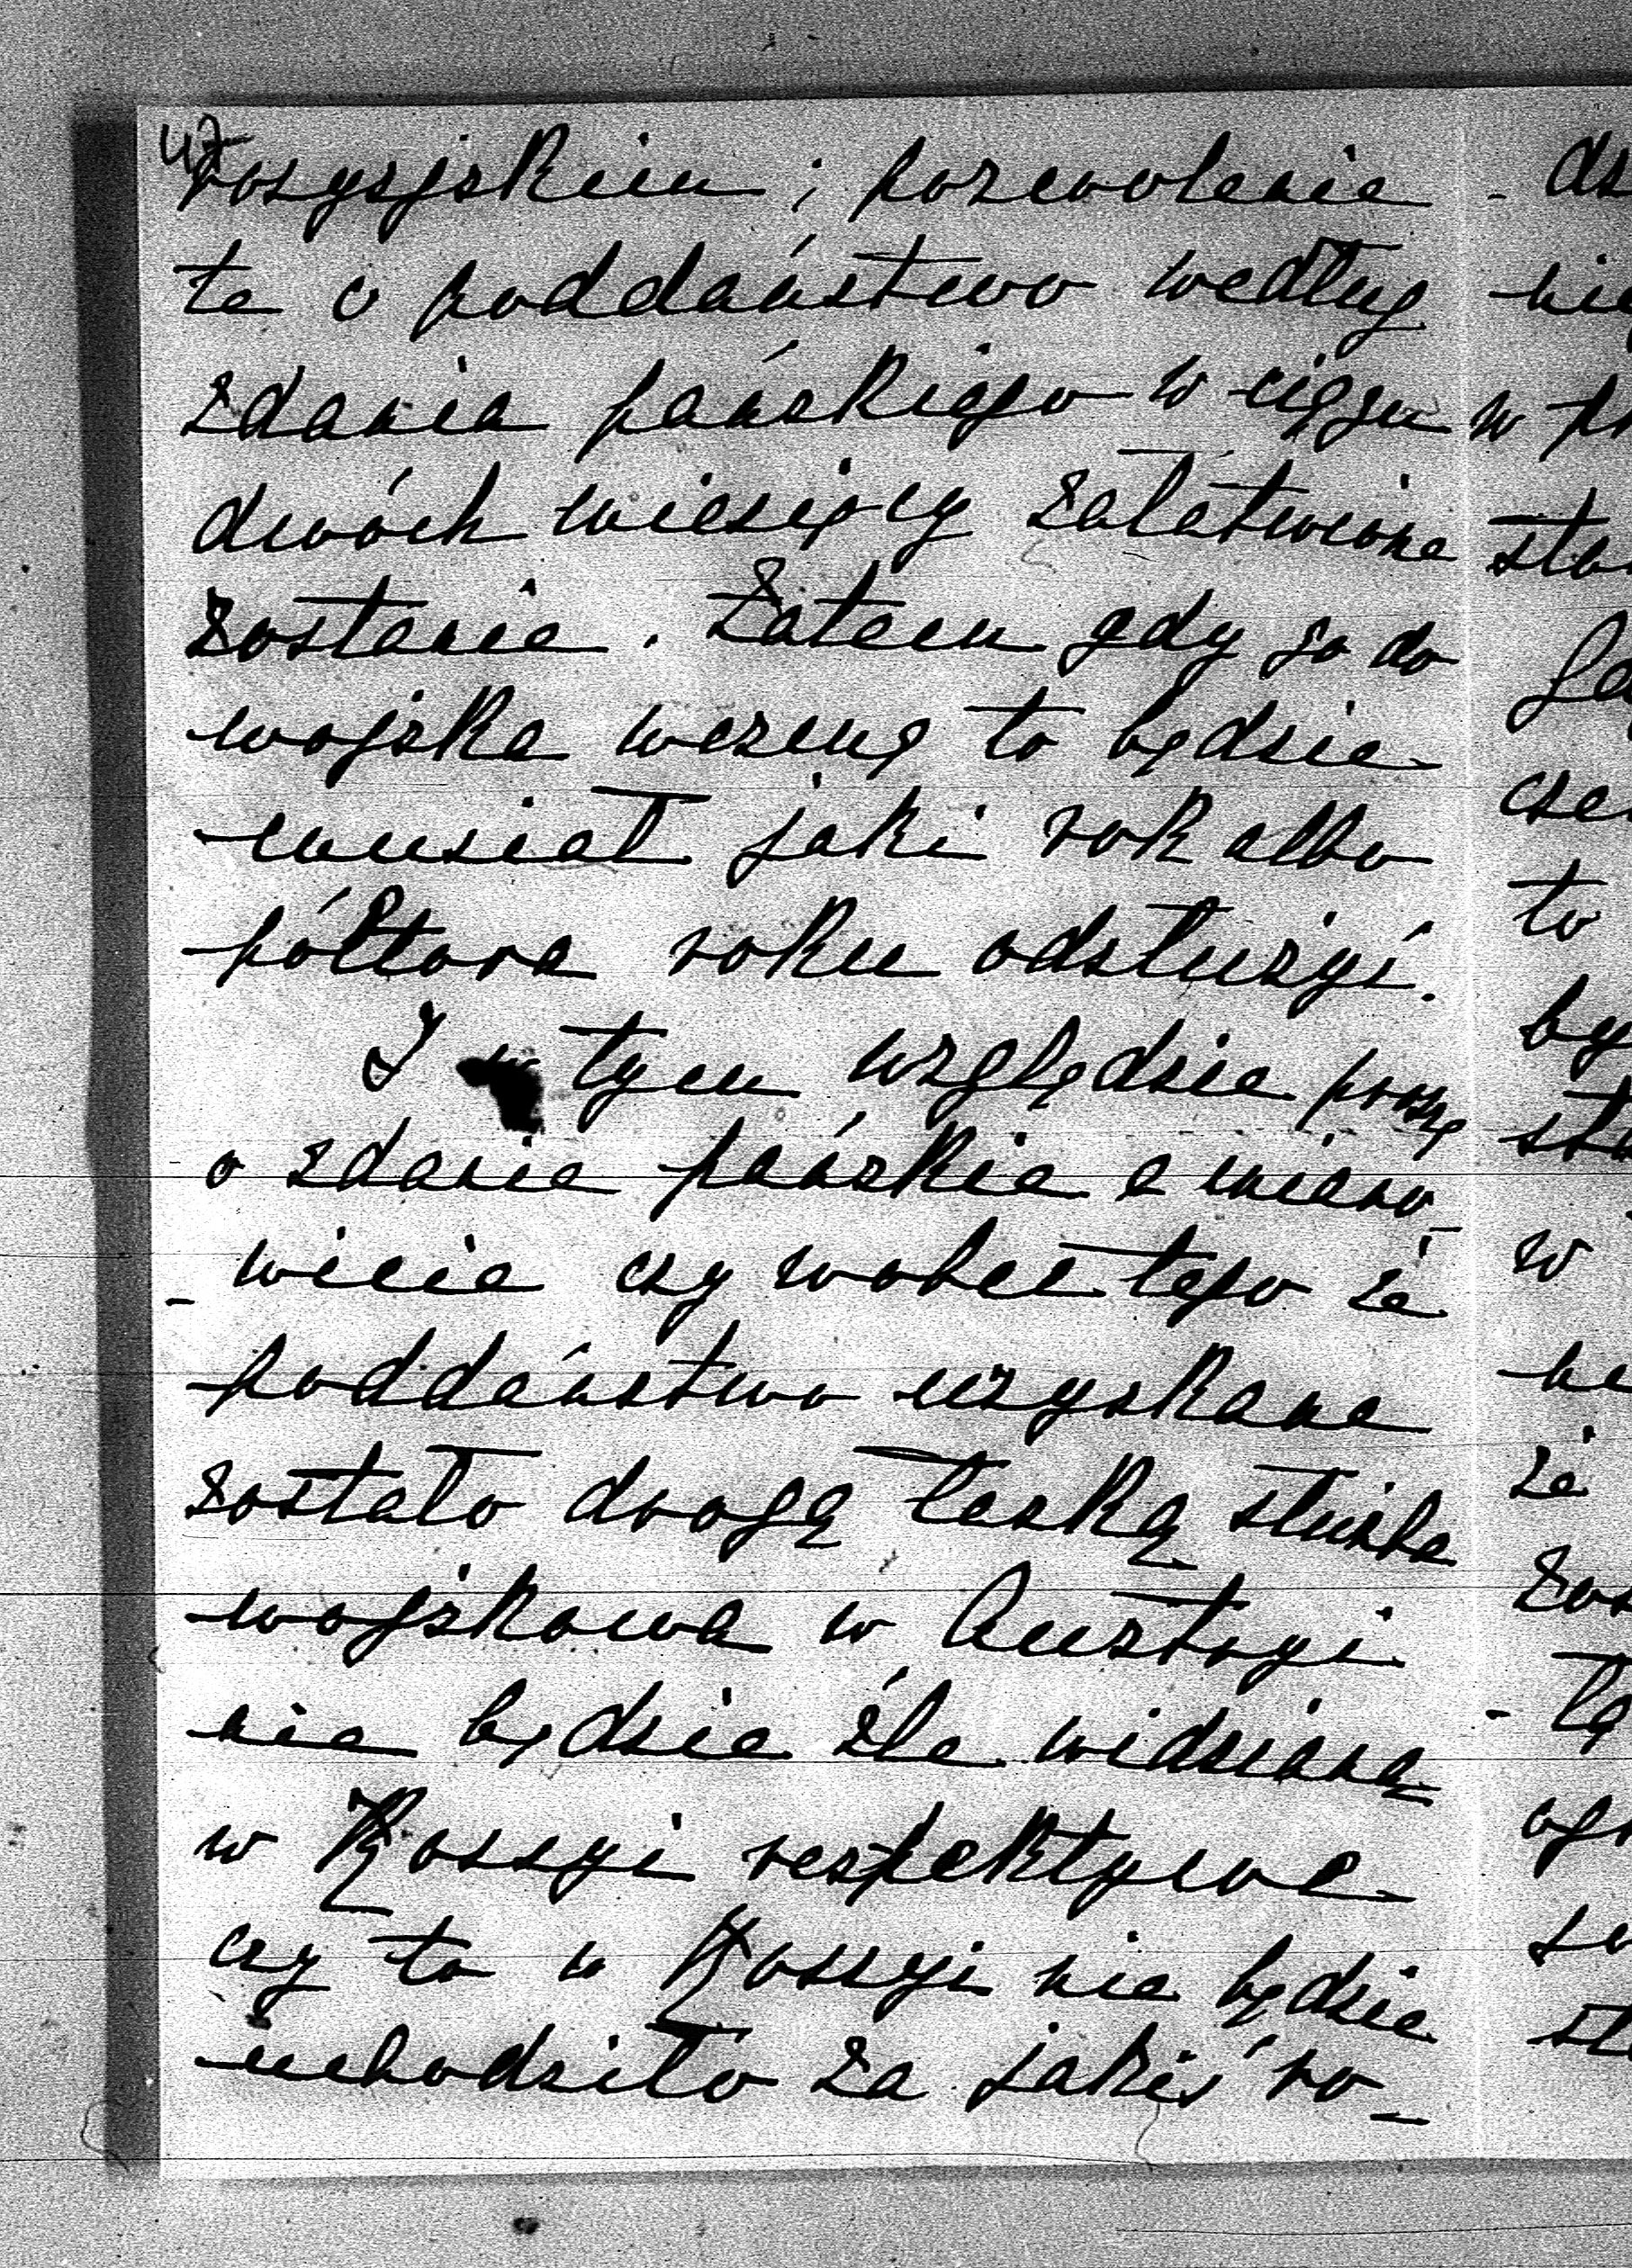 47
rosyjskim i pozwolenie
te o poddaństwo według
zdania pańskiego w ciągu
dwóch miesięcy załatwione
zostanie. Zatem gdy go do
wojska wezmą to będzie
musiał jaki rok albo
półtora roku odsłużyć.
I w tym względzie proszę
o zdanie pańskie a miano-
-wicie czy wobec tego że
poddaństwo uzyskane
zostało drogą łaską służba
wojskowa w Austryi
nie będzie źle widzianą
w Rossyi respektywe
czy to w Rossyi nie będzie
uchodziło za jakiś ro-
w
to
w
że